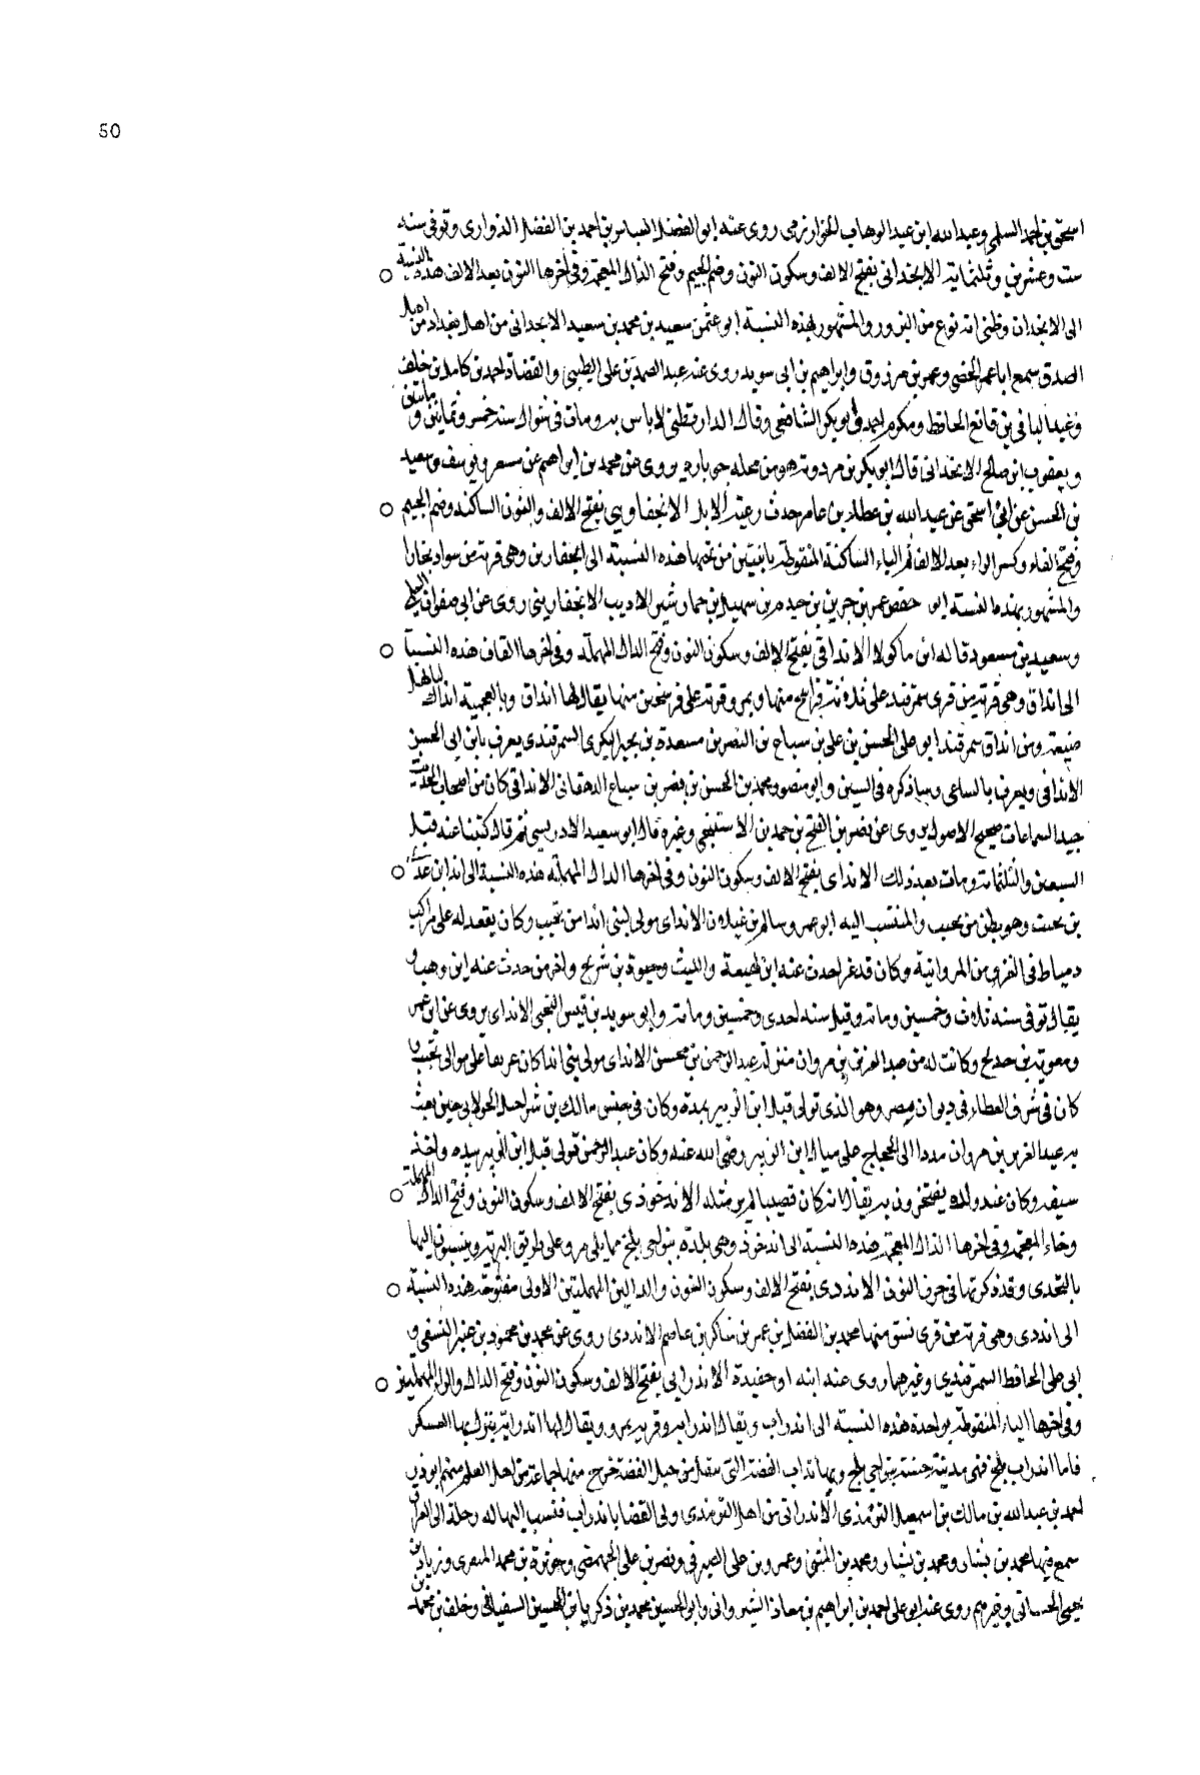 50
اسحق بن احمد السلمي وعبدالله ابن عبدالوهاب الخوارزمى روى عنه ابوالفضل العباس بن احمد بن الفضل الذوارى وتوفى سنه
ست وعشرين وثلثماية الانجذانى بفتح الالف وسكون النون وضم الجيم وفتح الذال المعجمة وفى اخرها النون بعد الالف هذه النسبة
الى الانجذان وظنى انه نوع من البزور والمشهور بهذه النسبة ابو عثمن سعيد بن محمد بن سعيد الانجذانى من اهل بغداد من اهل
الصدق سمع اباعمر الحضى وعمر بن مرزوق وابراهيم بن ابى سويد روى عنه عبدالصمد بن على الطيبى والقضاة احمد بن كامل بن خلف
وعبدالباقى بن قانع الحافظ ومكرم احمد وابو بكر الشافعى وقال الدارقطنى لاباس به ومات فى شوال سنة خمس وثمانين ومايتين
ويعقوب ابن صالح الانجذانى قال ابو بكر بن مردويه هو من محله جى باره يروى عن محمد بن ابراهيم عن مسعر ويوسف وسعيد
بن الحسن عن ابى اسحق عن عبدالله بن عطاء بن عامر حدث رعية الابل الانجفارينى بفتح الالف والنون الساكنه وضم الجيم
وفتح الفاء وكسر الراء بعد الالف ثم الياء الساكنة المنقوطة باثنتين من تحتها هذه النسبة الى انجفارين وهى قرية من سواد بخارا
والمشهور بهذه النسبة ابو حفص عمر بن جرير بن حيده بن سهيل بن حمارشير الاديب الانجفارينى روى عن ابى صفوان السلمى
وسعيد بن مسعود قاله ابن ماكولا الانداقى بفتح الالف وسكون النون وفتح الدال المهملة وفى اخرها القاف هذه النسبة
الى انداق وهى قرية من قرى سمرقند على ثلاثة فراسخ منها وبمرو قرية على فرسخين منها يقال لها انداق وبالعجمية انداك لياهل
ضيعة ومن انداق سمرقند ابو على الحسن بن على بن سباع بن النصر بن مسعدة بن بجير البكرى السمرقندى يعرف بابن ابى الحسن
الانداقى ويعرف بالساعى وساذكره فى السين وابو منصور محمد بن الحسن بن نصر بن سباع الدهقانى الانداقى كان من اصحاب الحديث
جيد السماعات صحيح الاصول يروى عن نصر بن الفتح بن حمد بن الاستيفنى وغيره قال ابو سعيد الادريسى ثم قال كتبنا عنه قبل
السبعين والثلثماية ومات بعد ذلك الاندائى بفتح الالف وسكون النون وفى اخرها الدال المهملة هذه النسبة الى اندا بن عدى
بن تجيب وهو بطن من تجيب والمنتسب اليه ابو عمر وسالم بن غيلان الاندائى مولى لبنى اندا من تجيب وكان يقعد له على مراكب
دمياط فى الغزو من المروانية وكان قد غزا حدث عنه ابن لهيعة والليث وحيوة بن شريح واخر من حدث عنه ابن وهب و
يقال توفى سنه ثلاث وخمسين وماية وقيل سنه احدى وخمسين وماية وابو سويد بن قيس التجيبى الاندائى يروى عن ابن عمر
ومعوية بن حديج وكانت له من عبدالعزيز بن مروان منزلة عبدالرحمن بن محسن الاندائى مولى بنى اندا كان عريفا على موالى تجيب و
كان فى شرف العطاء فى ديوان مصر وهو الذى تولى قتل ابن الزبير بمكة وكان فى جيش مالك بن شراحيل الخولانى حين بعث
به عبدالعزيز بن مروان مددا الى الحجاج على قتال ابن الزبير رضى الله عنه وكان عبدالرحمن تولى قتل ابن الزبير بيده واخذ
سيفه وكان عند ولده يفتخرون به يقال انه كان قصيبا لم ير مثله الاندخوذى بفتح الالف وسكون النون وفتح الدال المهملة
وخاء المعجمة وفى اخرها الذال المعجمة هذه النسبة الى اندخوذ وهى بلدة بنواحى بلخ مما يلى مرو على طريق البرية وينسبون اليها
بالنخدى وقد ذكرتها فى حرف النون الانددى بفتح الالف وسكون النون والدالين المهملتين الاولى مفتوحة هذه النسبة
الى انددى وهى قرية من قرى نسف منها محمد بن الفضل بن عمر بن شاكر بن عاصم الانددى روى عن محمد بن محمود بن عنبر النسفى و
ابى على الحافظ السمرقندى وغيرهما روى عنه ابنه او حفيدة الاندرابى بفتح الالف وسكون النون وفتح الدال والراء المهملتين
وفى اخرها الياء المنقوطة بواحدة هذه النسبة الى اندراب ويقال اندرابه وقرية بمرو ويقال لها اندرابة ينزل بها العسكر
فاما اندراب بلخ فهى مدينة حسنة بنواحى بلخ وبها تذاب الفضة التى تنقل من جبل الفضة خرج منها جماعة من اهل العلم منهم ابو ذر
احمد بن عبدالله بن مالك بن اسمعيل الترمذى الاندرابى من اهل الترمذى ولى القضا باندراب فنسب اليها له رحلة الى العراق
سمع فيها محمد بن بشار ومحمد بن يسار ومحمد بن المثنى وعمرو بن على الصيرفى ونصر بن على الجهضمى وحوثرة بن محمد المنقرى وزياد بن
يحيى الحسانى وغيرهم روى عنه ابو على احمد بن ابراهيم بن معاذ الشيروانى وابو الحسين محمد بن زكريا بن الحسين السفيانى وخلف بن محمد